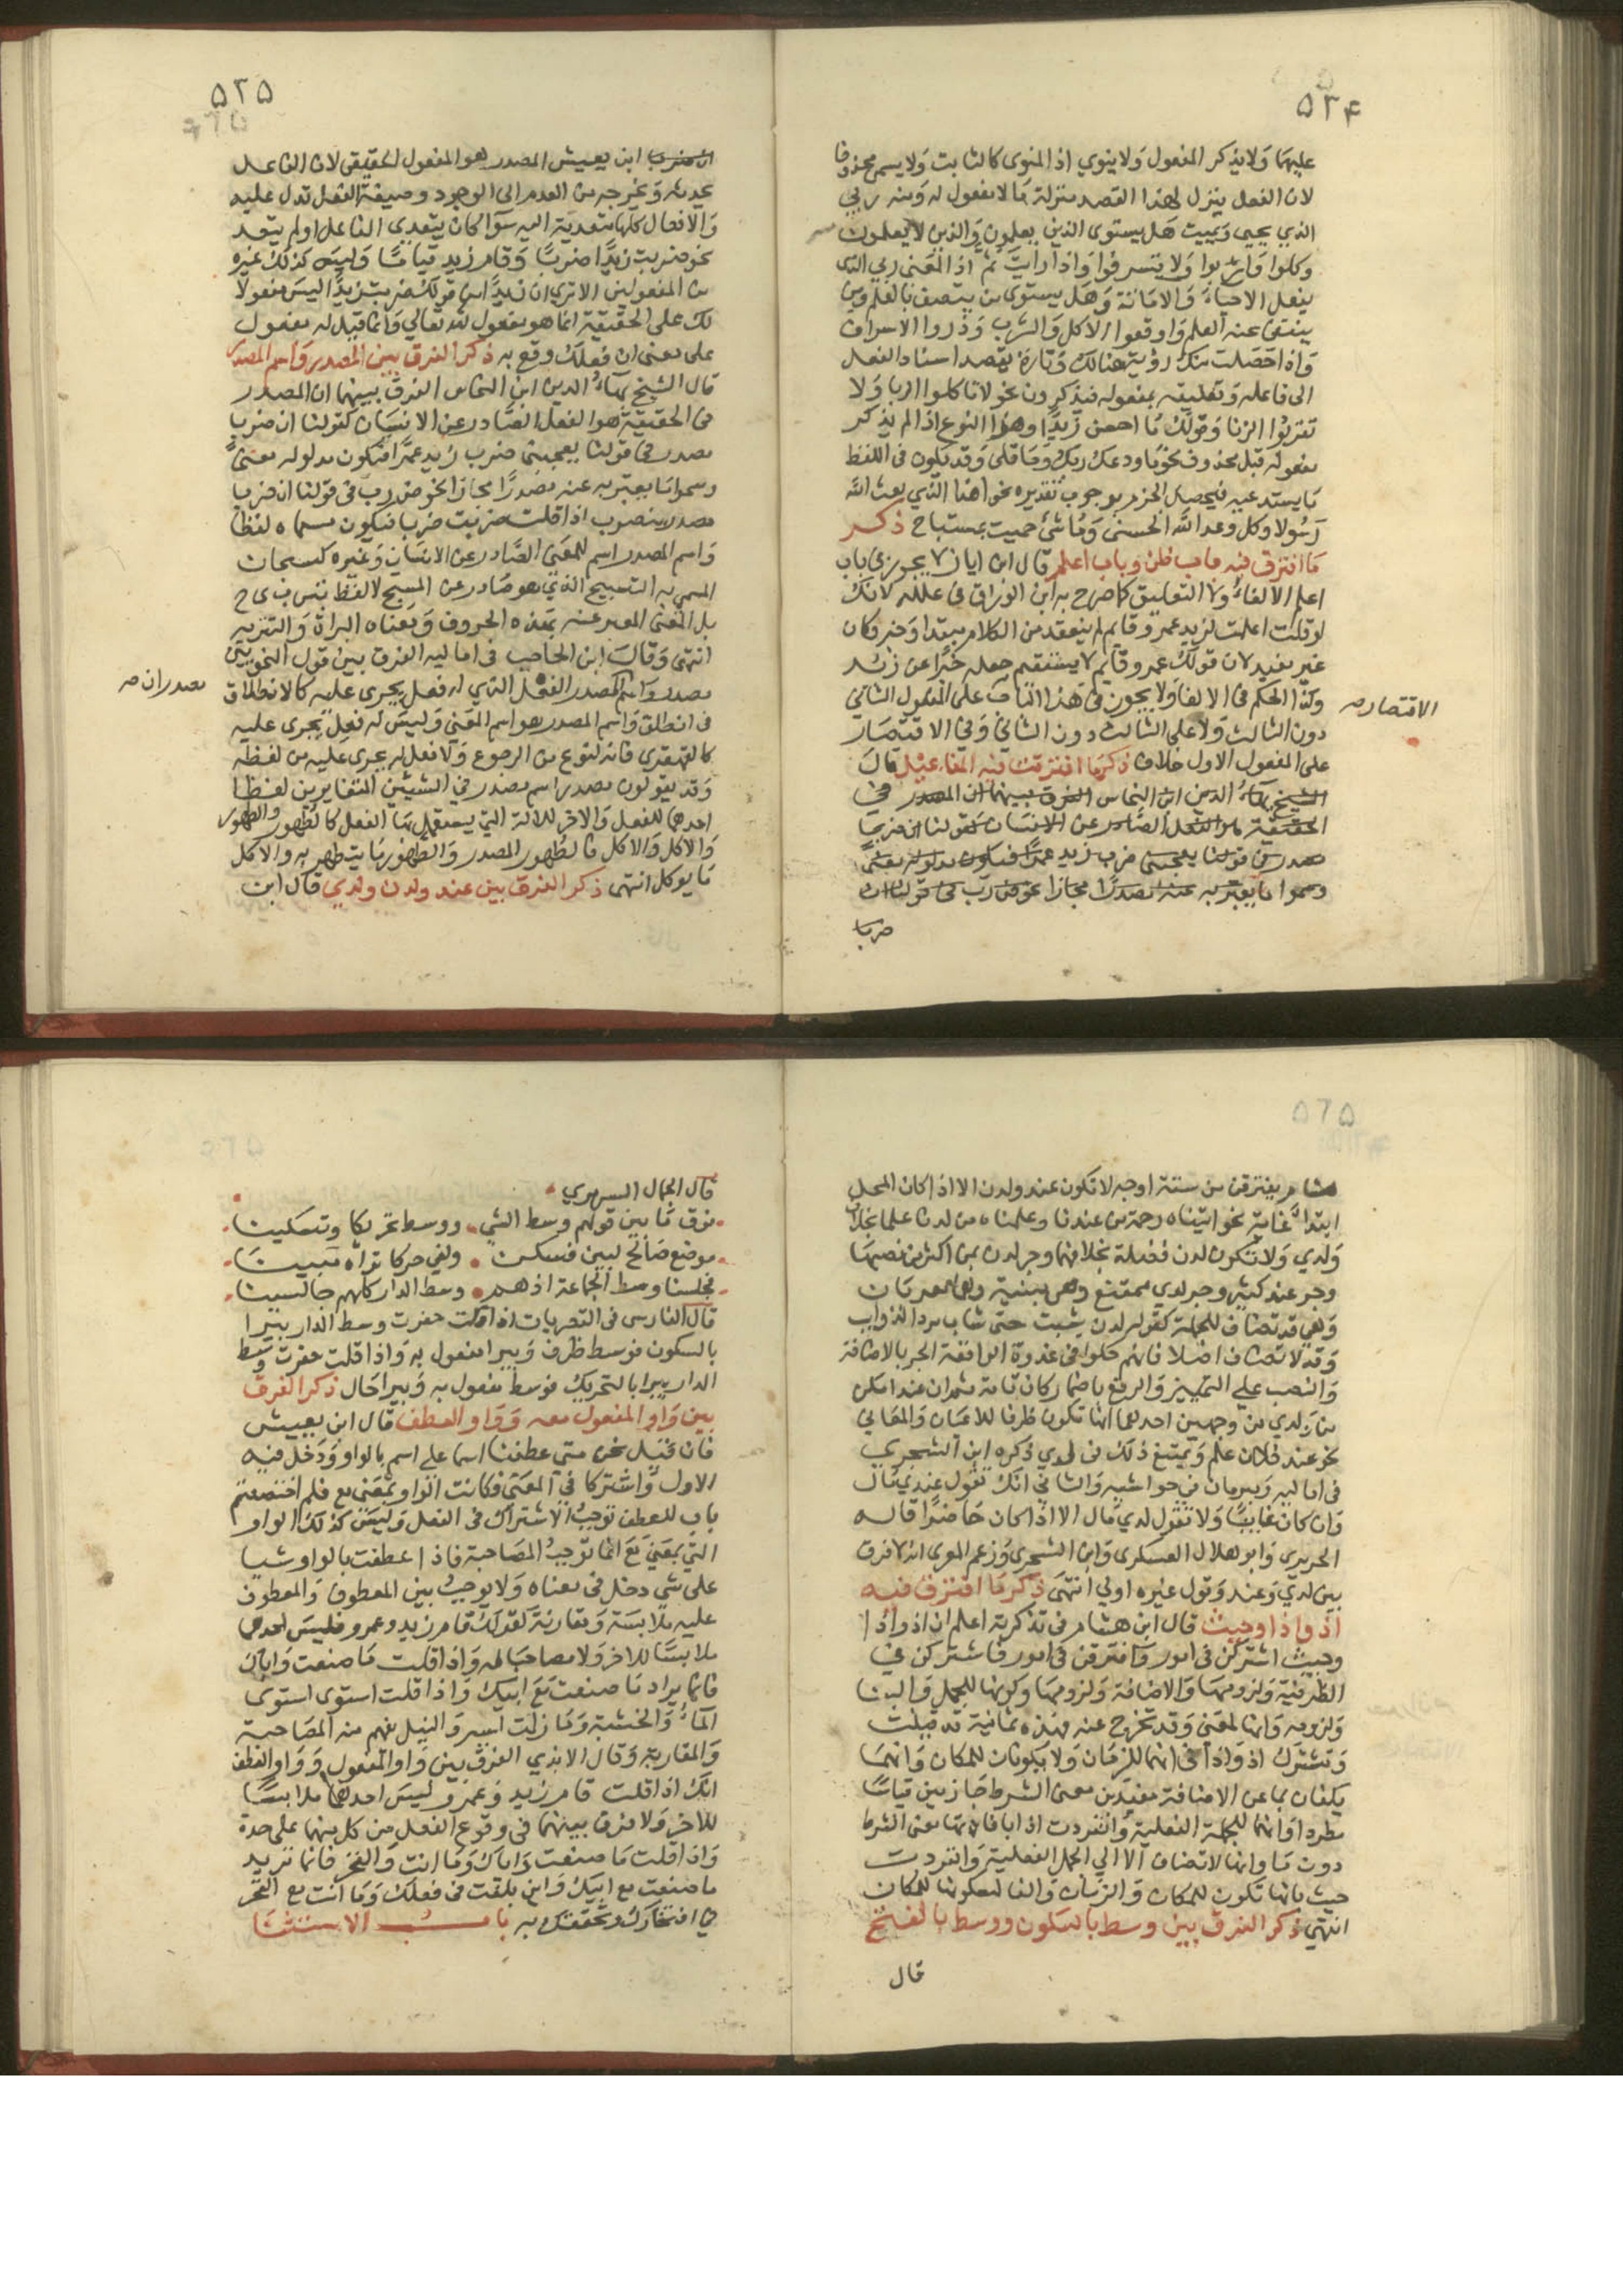 ٥٢٤
عليهما ولا يذكر المفعول ولا ينوي اذ المنوى كالثابت ولا يسمى محذوفا
لان الفعل ينزل لهذا القصد منزلة ما لا مفعول له ومنه ربي
الذي يحيي ويميت هل يستوى الذين يعلمون والذين لا يعلمون
وكلوا واشربوا ولا تسرفوا واذا رايت ثم اذ المعنى ربي الذى
يفعل الاحياء والاماتة وهل يستوى من يتصف بالعلم ومن
ينتفى عنه العلم واوقعوا الاكل والشرب وذروا الاسراف
واذا حصلت منك رؤية هنالك وتارة يقصد اسناد الفعل
الى فاعله وتعليقه بمفعوله فيذكرون نحو لا تاكلوا الربا ولا
تقربوا الزنا وقولك ما احسن زيدا وهذا النوع اذا لم يذكر
مفعوله قيل محذوف نحو ما ودعك ربك وما قلى وقد يكون فى اللفظ
ما يستدعيه فيحصل الجزم بوجوب تقديره نحو اهذا الذي بعث الله
رسولا وكل وعد الله الحسنى وما شئ حميت بمستباح ذكر
ما افترق فيه باب ظن وباب اعلم قال ابن اياز لا يجوز فى باب
اعلم الالغاء ولا التعليق كما صرح به ابن الوراق فى علله لانك
لو قلت اعلمت لزيد عمرو قايم لم ينعقد من الكلام مبتدا وخبر وكان
غير مفيد لان قولك عمرو قايم لا يستقيم جعله خبرا عن زيد
وكذا الحكم فى الالغا ولا يجوز فى هذا الباب على المفعول الثاني
الاقتصار صح
دون الثالث ولا على الثالث دون الثانى وفي الاقتصار
على المفعول الاول خلاف ذكر ما افترقت فيه المفاعيل قال
الشيخ بهاء الدين ابن النحاس الفرق بينهما ان المصدر فى
الحقيقة هو الفعل الصادر عن الانسان كقولنا ان ضربا
مصدر فى قولنا يعجبنى ضرب زيد عمرا فيكون مدلوله معنى
وسموا ما يعبر به عنه مصدرا مجازا نحو ض ر ب فى قولنا ان
ضربا
٥٢٥
ان ضربا ابن يعيش المصدر هو المفعول الحقيقى لان الفاعل
يحدثه ويخرجه من العدم الى الوجود وصيغة الفعل تدل عليه
والافعال كلها متعدية اليه سوآ كان يتعدي الفاعل او لم يتعد
نحو ضربت زيدا ضربا وقام زيد قياما وليس كذلك غيره
من المفعولين الا ترى ان زيدا من قولك ضربت زيدا ليس مفعولا
لك على الحقيقة انما هو مفعول لله تعالي وانما قيل له مفعول
على معنى ان فعلك وقع به ذكر الفرق بين المصدر واسم المصدر
قال الشيخ بهاء الدين ابن النحاس الفرق بينهما ان المصدر
فى الحقيقة هو الفعل الصادر عن الانسان كقولنا ان ضربا
مصدر فى قولنا يعجبنى ضرب زيد عمرا فيكون مدلوله معنى
وسموا ما يعبر به عنه مصدرا مجازا نحو ض ر ب فى قولنا ان ضربا
مصدر منصوب اذا قلت ضربت ضربا فيكون مسماه لفظا
واسم المصدر اسم للمعنى الصادر عن الانسان وغيره كسبحان
المسمى به التسبيح الذي هو صادر عن المسبح لا لفظ ت س ب ى ح
بل المعنى المعبر عنه بهذه الحروف ومعناه البراة والتنزيه
انتهى وقال ابن الحاجب فى اماليه الفرق بين قول النحويين
مصدر واسم المصدر الفعل الذي له فعل يجرى عليه كالانطلاق
مصدر ان صح
فى انطلق واسم المصدر هو اسم المعنى وليس له فعل يجرى عليه
كالقهقرى فانه لنوع من الرجوع ولا فعل له يجرى عليه من لفظه
وقد يقولون مصدر اسم مصدر في الشيئين المتغايرين لفظا
احدهما للفعل والاخر للالة التي يستعمل بها الفعل كالطهور والطهور
والاكل والاكل فالطهور المصدر والطهور ما يتطهر به والاكل
ما يوكل انتهى ذكر الفرق بين عند ولدن ولدي قال ابن
٥٢٥
هشام يفترقن من ستة اوجه لا تكون عند ولدن الا اذا كان المحل
ابتدا غاية نحو اتيناه رحمة من عندنا وعلمناه من لدنا علما بخلاف
ولدي ولا تكون لدن فضلة بخلافهما وجر لدن بمن اكثر من نصبها
وجر عند كثير وجر لدي ممتنع وهى مبنية وهما معربان
وهي قد تضاف للجملة كقوله لدن شبت حتى شاب سود الذوايب
وقد لا تضاف اصلا فانهم حكوا فى غدوة الواقعة الجر بالاضافة
والنصب علي التمييز والرفع باضمار كان تامة ثم ان عند امكن
من لدي من وجهين احدهما انها تكون ظرفا للاعيان والمعاني
نحو عند فلان علم ويمتنع ذلك فى لدي ذكره ابن الشجري
فى اماليه ومبرمان في حواشيه والثاني انك تقول عندي مال
وان كان غايبا ولا تقول لدي مال الا اذا كان حاضرا قاله
الحريري وابو هلال العسكرى وابن الشجري وزعم المعرى انه لا فرق
بين لدي وعند وقول غيره اولي انتهى ذكر ما افترق فيه
اذ واذا وحيث قال ابن هشام فى تذكرته اعلم ان اذ واذا
وحيث اشتركن فى امور وافترقن فى امور فاشتركن في
الظرفية ولزومها والاضافة ولزومها وكونها للجمل والبنا
ولزومه وانها لمعنى وقد تخرج عنه فهذه ثمانية قد قيلت
وتشترك اذ واذا فى انهما للزمان ولا يكونان للمكان وانهما
يكفان بما عن الاضافة مفيدين معنى الشرط جازمين قياسا
مطردا وانها للجملة الفعلية وانفردت اذا بافادتها معنى الشرط
دون ما وانها لا تضاف الا الي الجمل الفعلية وانفردت
حيث بانها تكون للمكان والزمان والغالب كونها للمكان
انتهي ذكر الفرق بين وسط بالسكون ووسط بالفتح
قال
قال الجمال السرمري
فرق ما بين قولهم وسط الشي ووسط تحريكا وتسكينا
موضع صالح لبين فسكن ولفي حركا تراه مبينا
فجلسنا وسط الجماعة اذ هم وسط الدار كلهم جالسينا
قال الفارسى فى القصريات اذا قلت حفرت وسط الدار بيرا
بالسكون فوسط ظرف وبيرا مفعول به واذا قلت حفرت وسط
الدار بيرا بالتحريك فوسط مفعول به وبيرا حال ذكر الفرق
بين واو المفعول معه وواو العطف قال ابن يعيش
فان قيل نحن متي عطفنا اسما على اسم بالواو ودخل فيه
الاول واشتركا في المعنى فكانت الواو بمعنى مع فلم اختصصتم
باب للعطف توجب الاشتراك فى الفعل وليس كذلك الواو
التي بمعنى مع انما توجب المصاحبة فاذا عطفت بالواو شيا
على شى دخل فى معناه ولا يوجب بين المعطوف والمعطوف
عليه ملابسة ومقارنة كقولك قام زيد وعمرو فليس احدهما
ملابسا للاخر ولا مصاحبا له واذا قلت ما صنعت واباك
فانما يراد ما صنعت مع ابيك واذا قلت استوى
الماء والخشبة وما زلت اسير والنيل يفهم منه المصاحبة
والمقاربة وقال الابذي الفرق بين واو المفعول وواو العطف
انك اذا قلت قام زيد وعمرو ليس احدهما ملابسا
للاخر ولا فرق بينهما فى وقوع الفعل من كل منهما على حدة
واذا قلت ما صنعت واباك وما انت والفخر فانما تريد
ما صنعت مع ابيك واين بلغت فى فعلك وما انت مع الفخر
في افتخارك وتحققك به باب الاستثنا